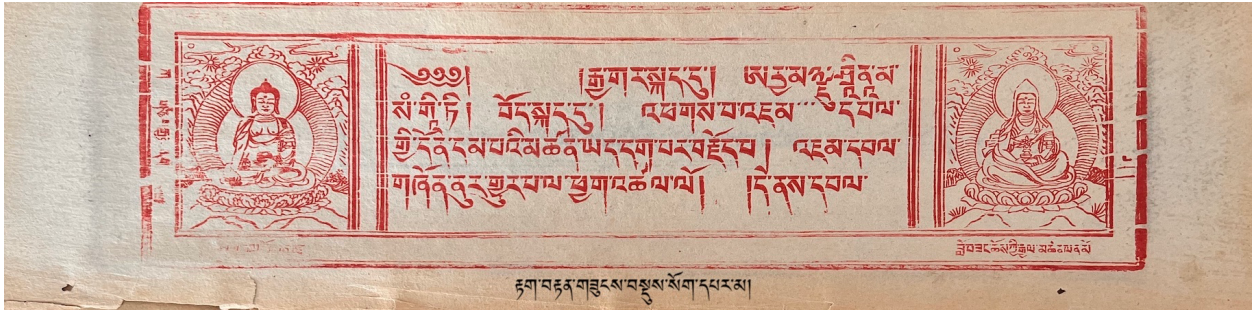 ༄༅༅། །རྒྱ་གར་སྐད་དུ། ཨརྱ་མཉྫུ་ཤྲཱི་ནཱ་མ་
སཾ་གཱི་ཏི། བོད་སྐད་དུ། འཕགས་པ་འཇམ་དཔལ་
གྱི་དོན་དམ་པའི་མཚན་ཡང་དག་པར་བརྗོད་པ། འཇམ་དཔལ་
གཞོན་ནུར་གྱུར་པ་ལ་ཕྱག་འཚལ་ལོ། །དེ་ནས་དཔལ་
བློ་བཟང་ཆོས་ཀྱི་རྒྱལ་མཚན་ལ་ན་མོ
རྟག་བརྟན་གཟུངས་བསྡུས་སོག་དཔར་མ།